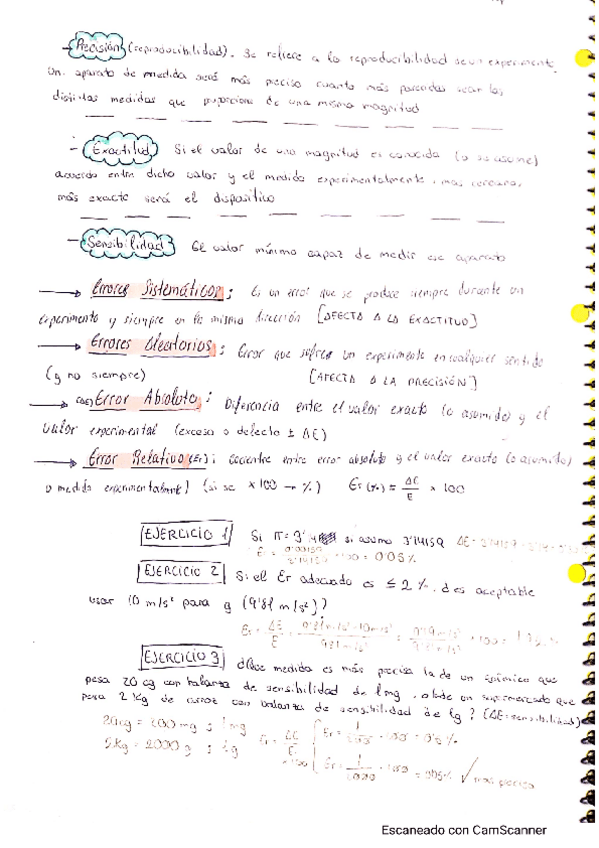 → Precisión (reproducibilidad). Se refiere a la reproducibilidad de un experimento
Un aparato de medida será más preciso cuanto más parecidas sean las
distintas medidas que proporciona de una misma magnitud
- Exactitud Si el valor de una magnitud es conocida (o se asume)
acuerdo entre dicho valor y el medido experimentalmente, mas cercano,
más exacto será el dispositivo
- Sensibilidad El valor mínimo capaz de medir ese aparato
→ Errores Sistemáticos: Es un error que se produce siempre durante un
experimento y siempre en la misma dirección [AFECTA A LA EXACTITUD]
→ Errores Aleatorios: Error que sufre un experimento en cualquier sentido
(y no siempre) [AFECTA A LA PRECISIÓN]
→ Error Absoluto: Diferencia entre el valor exacto (o asumido) y el
valor experimental (exceso o defecto ± ΔE)
→ Error Relativo (Er): cociente entre error absoluto y el valor exacto (o asumido)
o medido experimentalmente) (si se x100 → %) Er (%) = ΔE/E x 100
EJERCICIO 1 Si π = 3'14 si asumo 3'14159
= 0'05%
EJERCICIO 2 Si el Er adecuado es ≤ 2%. d es aceptable
usar 10 m/s² para g (9'81 m/s²)?
Er = ΔE/E = 9'81 m/s² - 10 m/s² / 9'81 m/s²
EJERCICIO 3 d Que medida es más precisa la de un químico que
pesa 20 cg con balanza de sensibilidad de 1mg, o la de un supermercado que
pesa 2 Kg de arroz con balanza de sensibilidad de 1g? (ΔE=sensibilidad)
20cg = 200 mg ; 1mg
= 2000 g ; 1g
Er = ΔE/E x100
Er = 1/200 · 100 = 0'5 %
= 0'05% ✓ más precisa
Escaneado con CamScanner